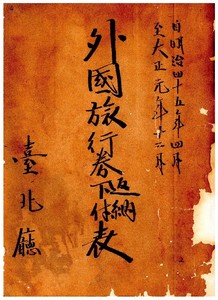 自明治四十五年四月
至大正元年十二月
外國旅行券下付返納表
臺北廳